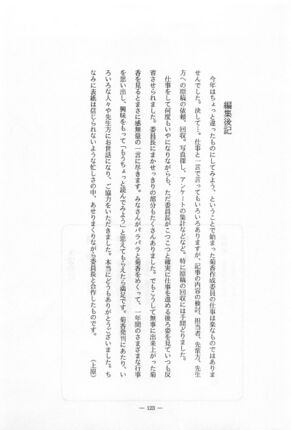 編集後記
今年はちょっと違ったものにしてみよう、ということで始まった菊香作成委員の仕事は楽なものではありま
せんでした。決して…。仕事と一言で言ってもいろいろありますが、記事の内容の検討、担当者、先輩方、先生
方への原稿の依頼、回収、写真探し、アンケートの集計などなど。特に原稿の回収には手間どりました。
仕事をしてて何度もいやになりながらも、ただ委員長がこつこつと確実に仕事を進める後ろ姿を見ていつも反
省させられました。委員長にまかせっきりの部分もたくさんありました。でもこうして無事に出来上がった菊
香を見るとまさに感無量の一言に尽きます。みなさんがパラパラと菊香をめくって、一年間のさまざまな行事
を思い出し、興味をもって「もうちょっと読んでみよう」と思えてもらえたら満足です。菊香発刊にあたり、い
ろいろな人々や先生方にお世話になり、ご協力をいただきました。本当にどうもありがとうございました。ち
なみに表紙は信じられないような忙しさの中、あせりまくりながら委員長と合作したものです。
（上原）
― 123 ―